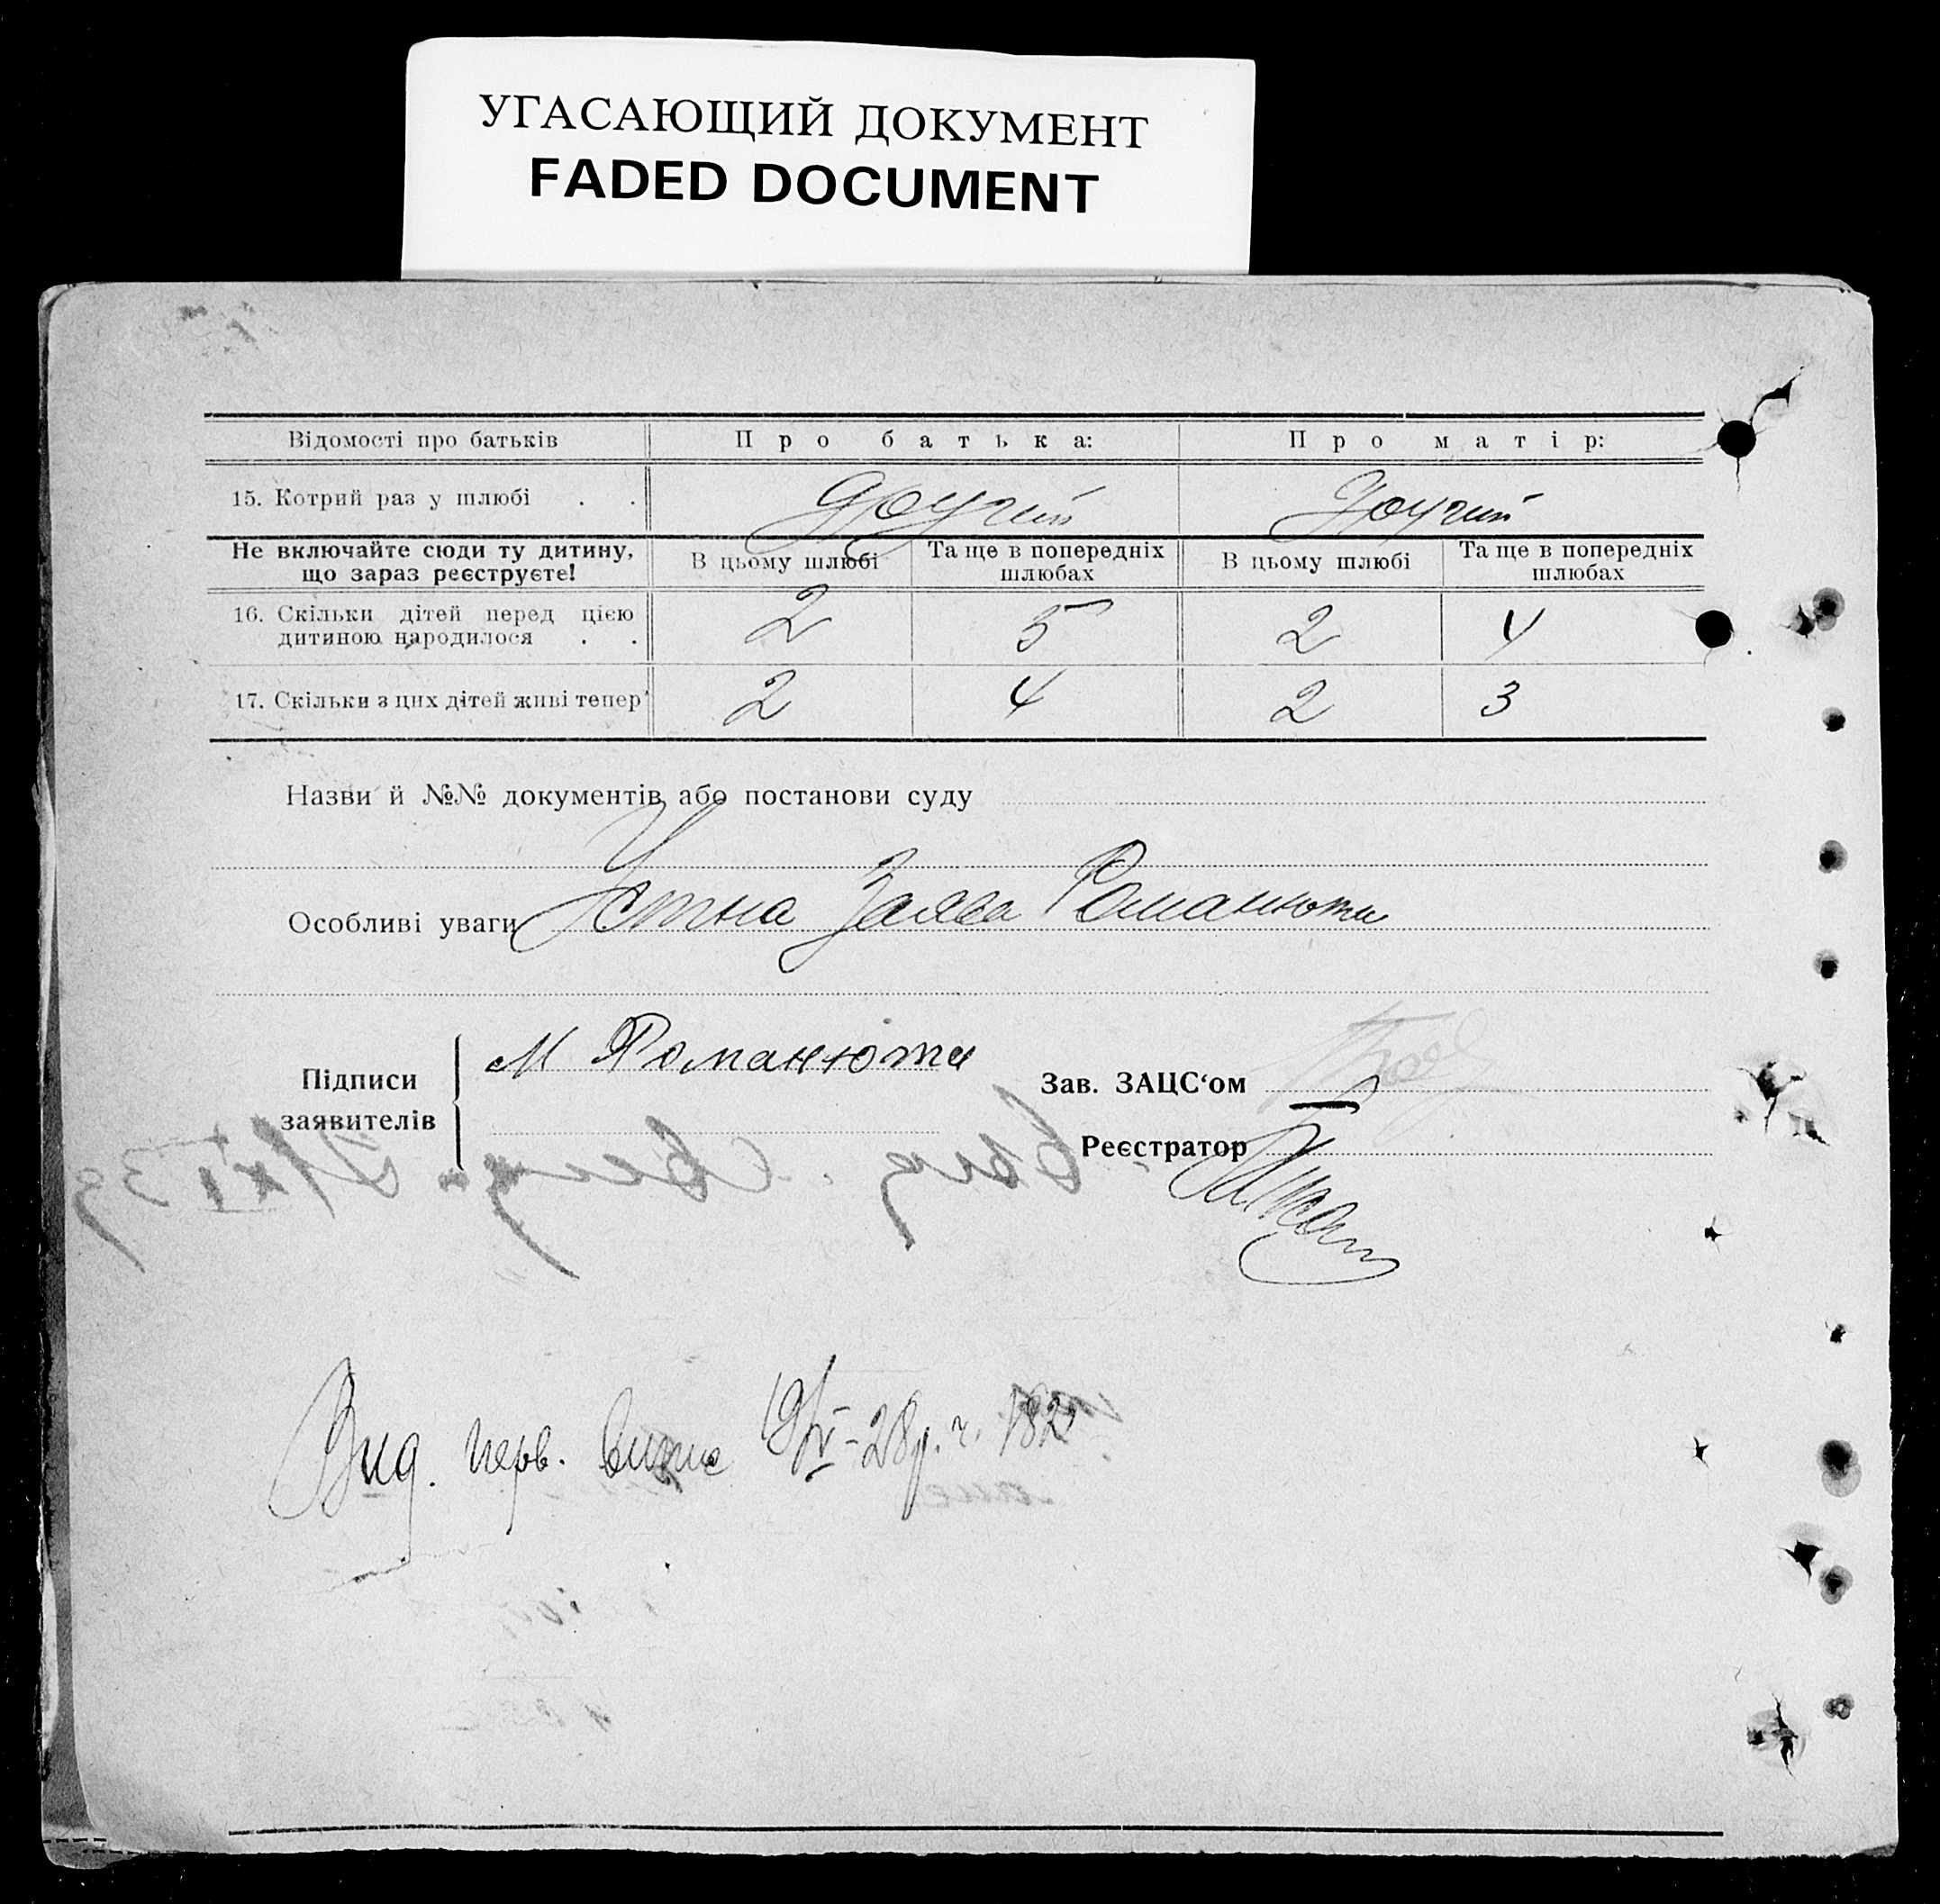 УГАСАЮЩИЙ ДОКУМЕНТ
FADED DOCUMENT
Відомості про батьків Про батька: Про матір:
15. Котрий раз у шлюбі . . другий другий
Не включайте сюди ту дитину, що зараз реєструєте! В цьому шлюбі Та ще в попередніх шлюбах В цьому шлюбі Та ще в попередніх шлюбах
16. Скільки дітей перед цією дитиною народилося . . 2 5 2 4
17. Скільки з цих дітей живі тепер 2 4 2 3
Назви й №№ документів або постанови суду
Особливі уваги Устна Заява Романюти
Підписи заявителів М Романюти
Зав. ЗАЦС‘ом
Реєстратор
Вид. перв. 19/IV-28р. ч. 182